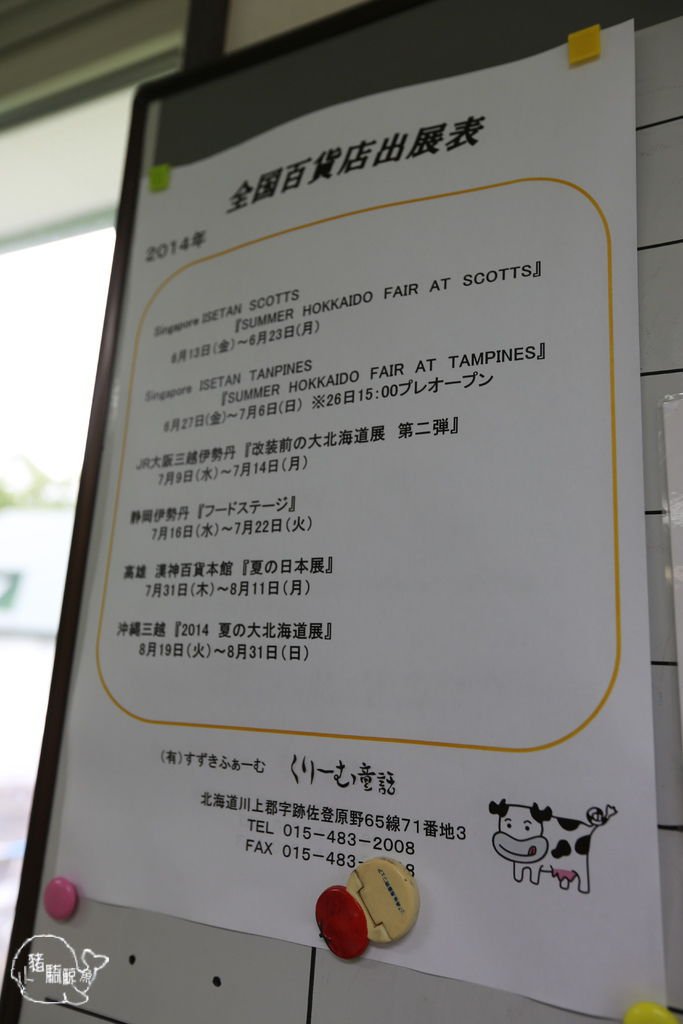 全国百貨店出展表
2014年
Singapore ISETAN SCOTTS
『SUMMER HOKKAIDO FAIR AT SCOTTS』
6月13日(金)～6月23日(月)
Singapore ISETAN TANPINES
『SUMMER HOKKAIDO FAIR AT TAMPINES』
6月27日(金)～7月6日(日) ※26日15:00プレオープン
JR大阪三越伊勢丹『改装前の大北海道展 第二弾』
7月9日(水)～7月14日(月)
静岡伊勢丹『フードステージ』
7月16日(水)～7月22日(火)
高雄 漢神百貨本館『夏の日本展』
7月31日(木)～8月11日(月)
沖縄三越『2014 夏の大北海道展』
8月19日(火)～8月31日(日)
(有)すずきふぁーむ くりーむ童話
北海道川上郡字跡佐登原野65線71番地3
TEL 015－483－2008
FAX 015－483－
豬騎鯨魚